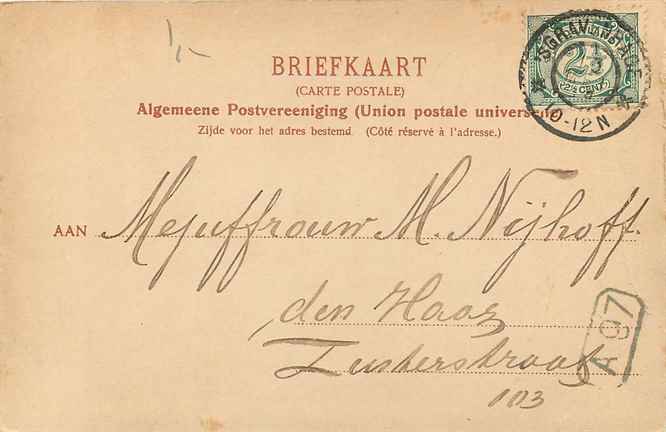 1,-
BRIEFKAART
(CARTE POSTALE)
Algemeene Postvereeniging (Union postale universel
Zijde voor het adres bestemd. (Côté réservé à l'adresse.)
2½
(2½ CENT)
10-12 N
AAN Mejuffrouw M. Nijhoff.
den Haag
Zusterstraat
103
A 87